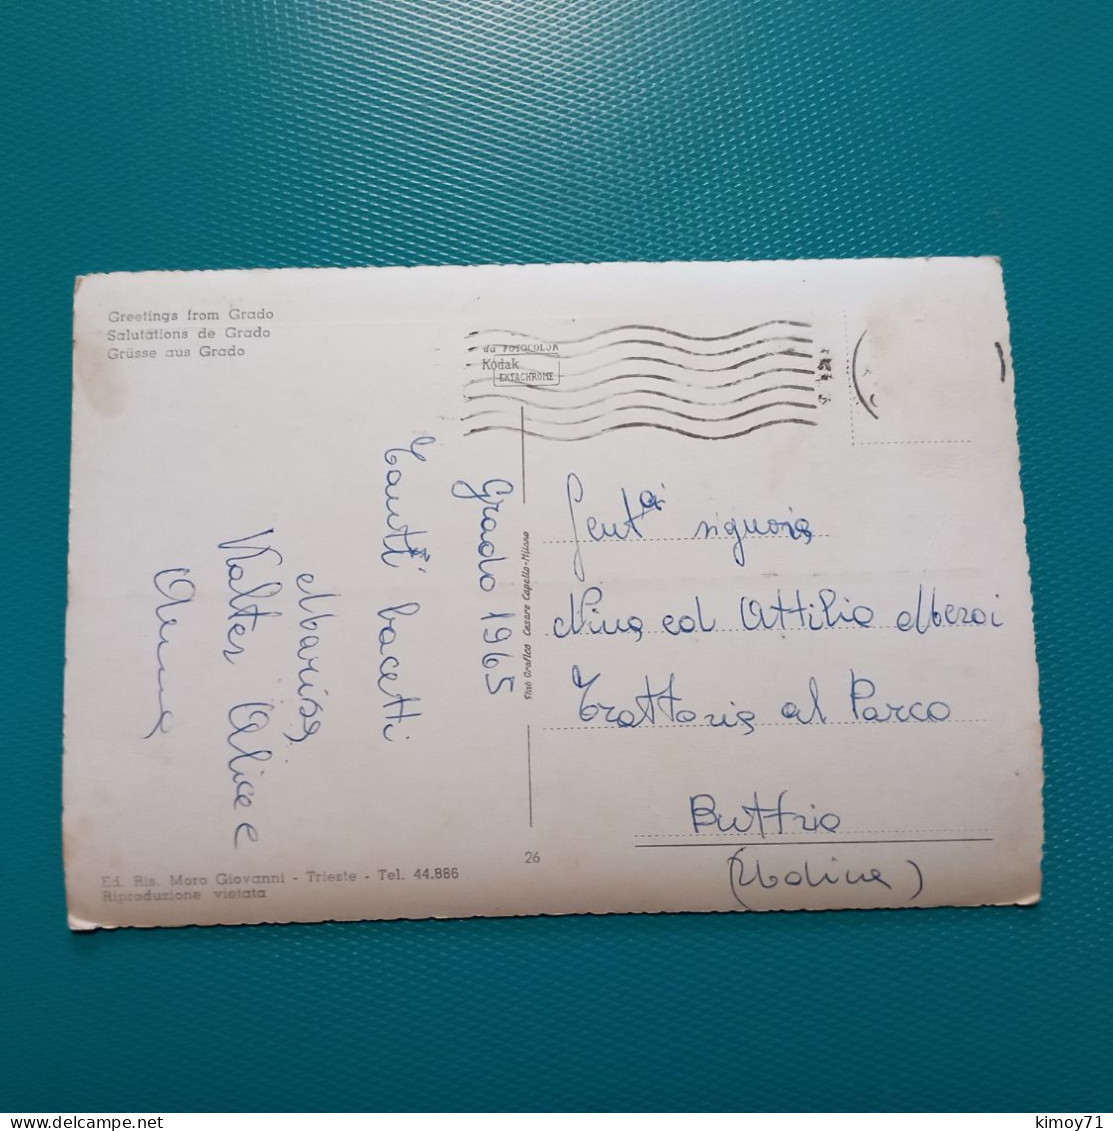 Greetings from Grado
Salutations de Grado
Grüsse aus Grado
da FOTOCOLOR
Kodak
EKTACHROME
Grado 1965
Tanti bacetti
Marisa
Walter Alice e
Anna
Stab Grafico Cesare Capello-Milano
Gent.ai signora
Nina ed Attilio Meroi
Trattoria al Parco
Buttrio
(Udine)
26
Ed. Ris. Moro Giovanni - Trieste - Tel. 44.886
Riproduzione vietata
kimoy71